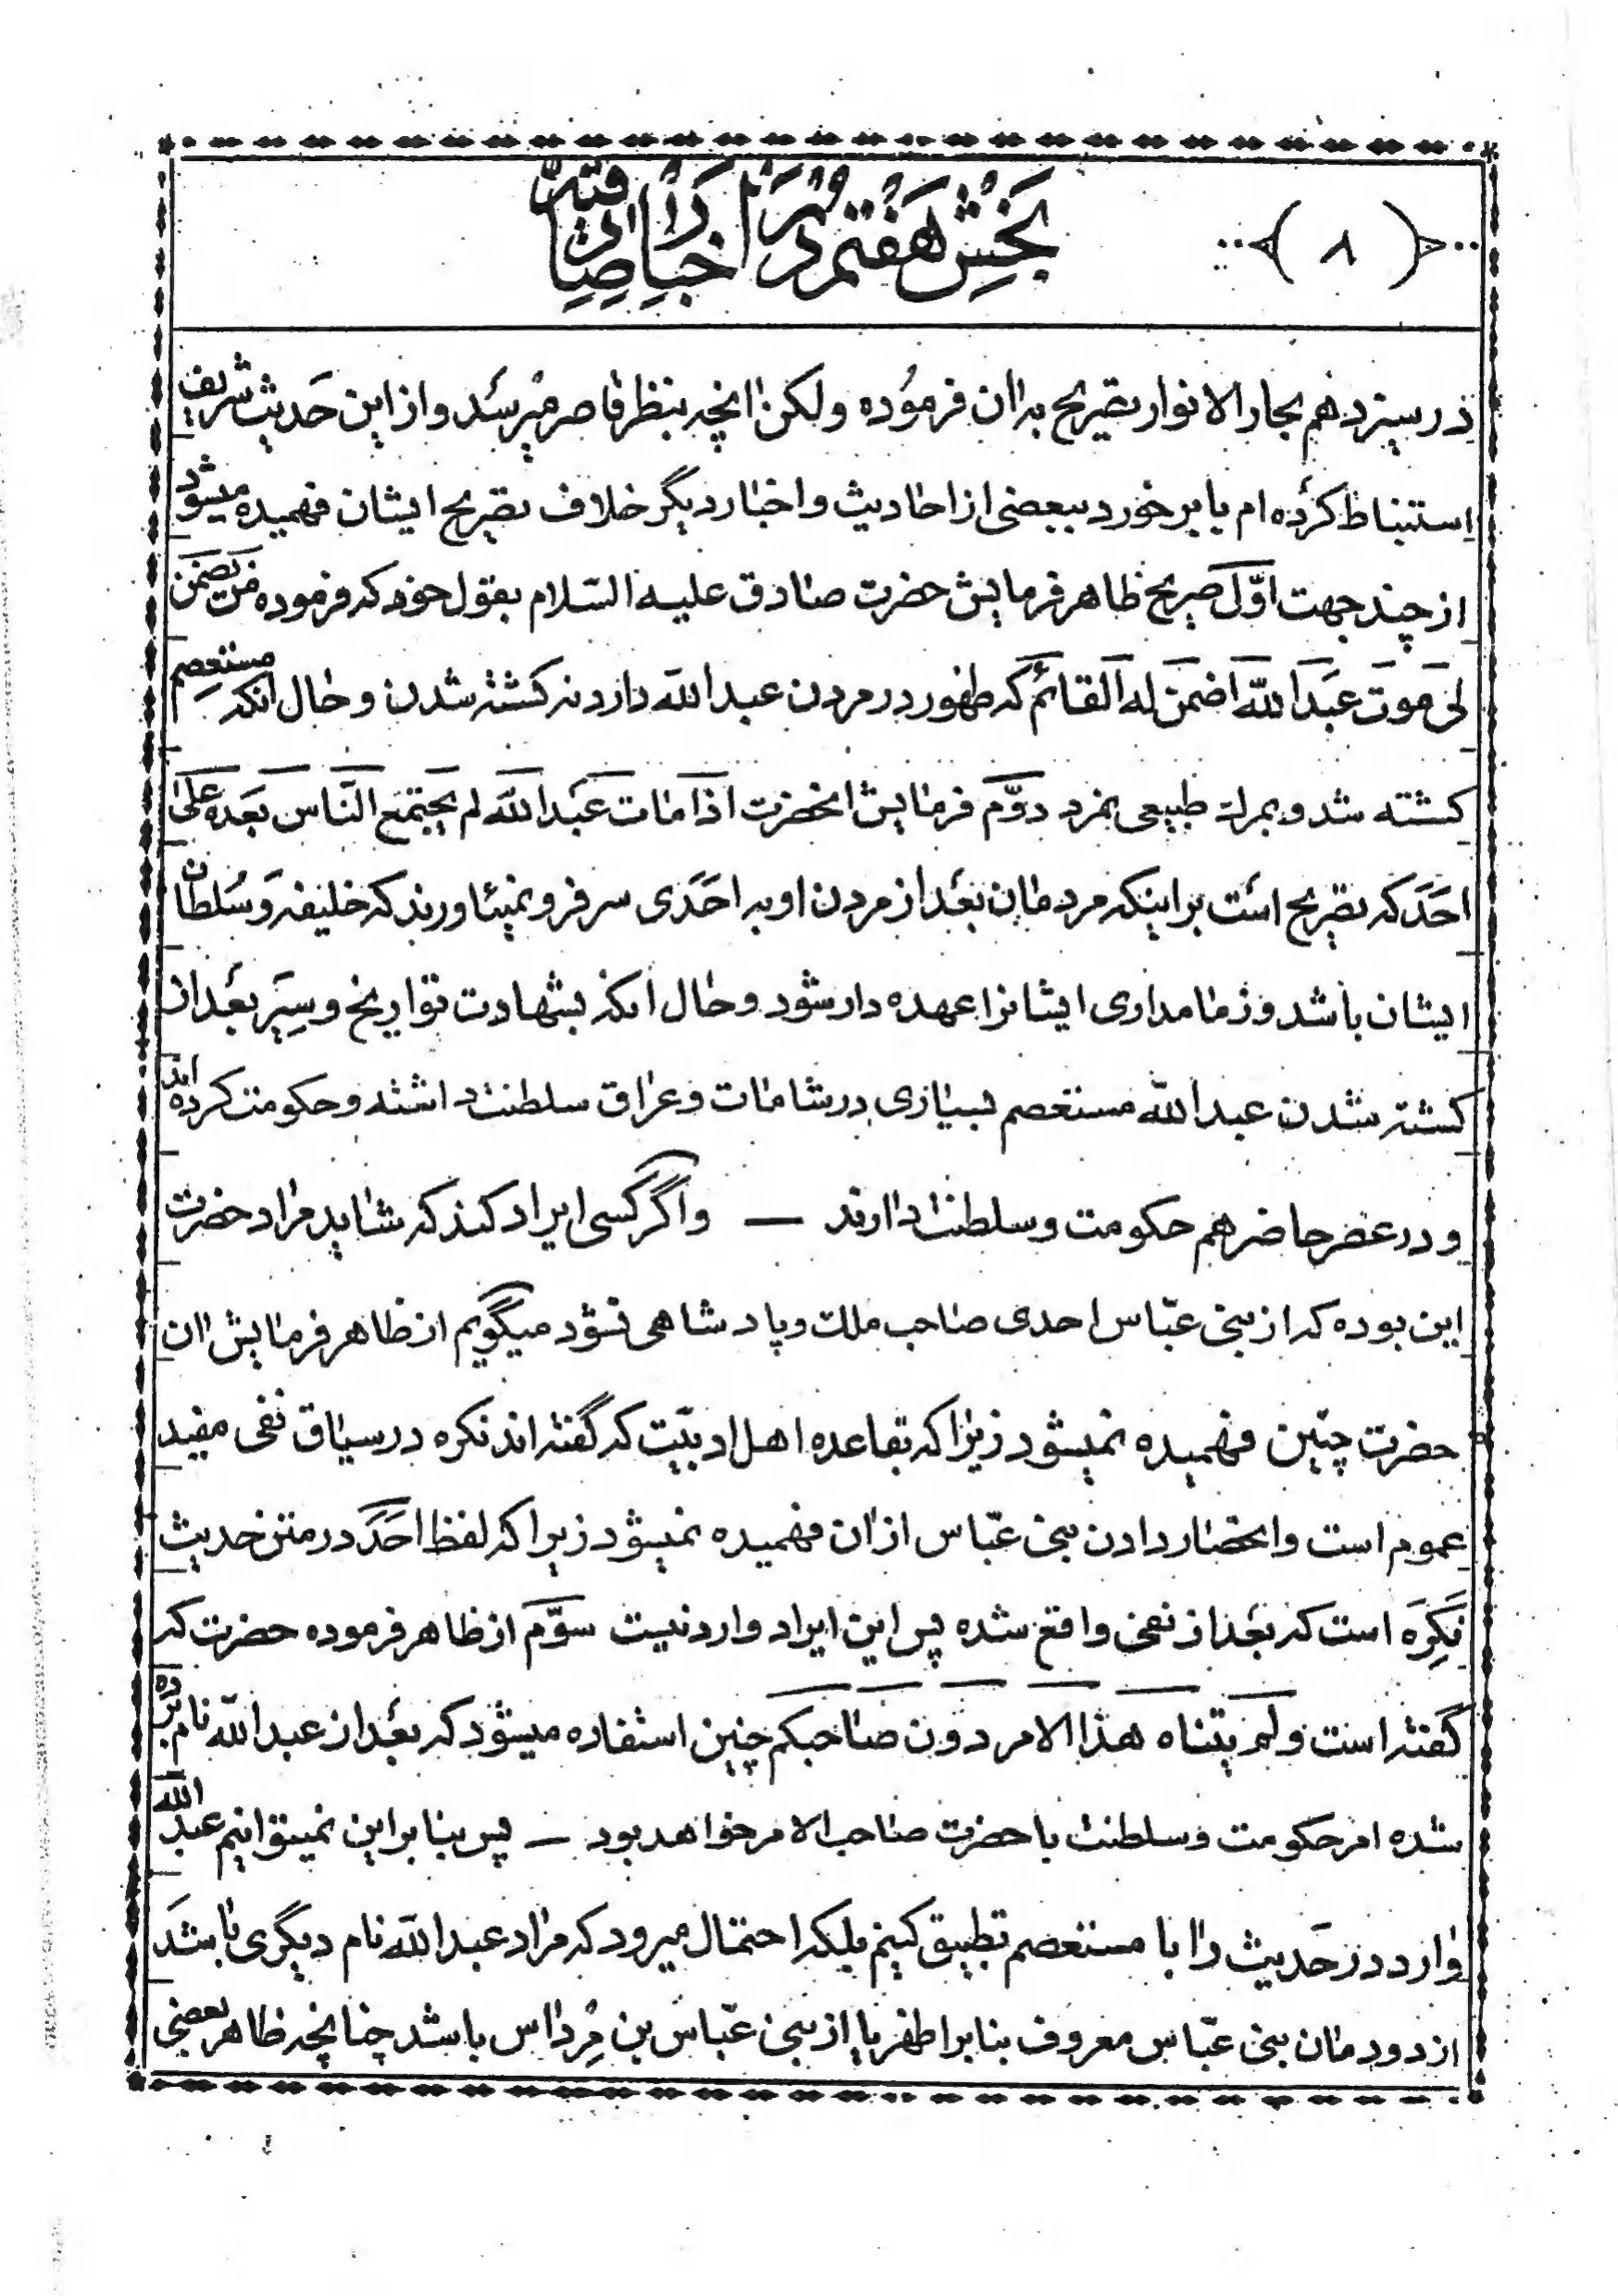 (۸)
بخش هفتم در اخبار صادقیه
در سیزدهم بحار الانوار تصریح بدان فرموده ولکن انچه بنظر قاصر میرسد و از این حدیث شریف
استنباط کرده ام با برخورد ببعضی از احادیث و اخبار دیگر خلاف تصریح ایشان فهمیده میشود
از چند جهت اوّل صریح ظاهر فرمایش حضرت صادق علیه السّلام بقول خود که فرموده من یضمن
لی موت عبدالله اضمن له القائم که ظهور در مردن عبدالله دارد نه کشته شدن و حال انکه مستعصم
کشته شد و بمرك طبیعی نمرد دوّم فرمایش انحضرت اذا مات عبدالله لم یجتمع النّاس بعده علی
احد که تصریح است بر اینکه مردمان بعد از مردن او به احدی سر فرو نمیئاورند که خلیفه و سلطان
ایشان باشد و زمامداری ایشانرا عهده دار شود و حال انکه بشهادت تواریخ و سیر بعد از
کشته شدن عبدالله مستعصم بسیاری در شامات و عراق سلطنت داشته و حکومت کرده اند
و در عصر حاضر هم حکومت و سلطنت دارند — و اگر کسی ایراد کند که شاید مراد حضرت
این بوده که از بنی عبّاس احدی صاحب ملك و پادشاهی نشود میگویم از ظاهر فرمایش ان
حضرت چنین فهمیده نمیشود زیرا که بقاعده اهل ادبیّت که گفته اند نکره در سیاق نفی مفید
عموم است و انحصار دادن ببنی عبّاس از ان فهمیده نمیشود زیرا که لفظ احد در متن حدیث
نکره است که بعد از نفی واقع شده پس این ایراد وارد نیست سوّم از ظاهر فرموده حضرت که
گفته است و لم یتناه هذا الامر دون صاحبکم چنین استفاده میشود که بعد از عبدالله نام برده
شده امر حکومت و سلطنت با حضرت صاحب الامر خواهد بود — پس بنابراین نمیتوانیم عبدالله
وارد در حدیث را با مستعصم تطبیق کنیم بلکه احتمال میرود که مراد عبدالله نام دیگری باشد
از دودمان بنی عبّاس معروف بنا بر اظهر یا از بنی عبّاس بن مرداس باشد چنانچه ظاهر بعضی